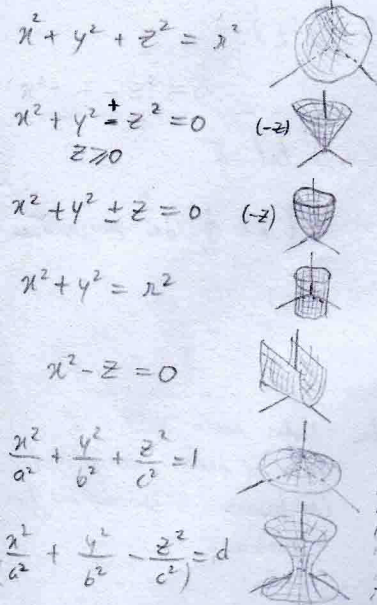 x² + y² + z² = r²
x² + y² ± z² = 0 (-z)
z ⩾ 0
x² + y² ± z = 0 (-z)
x² + y² = r²
x² - z = 0
x²/a² + y²/b² + z²/c² = 1
x²/a² + y²/b² - z²/c²) = d